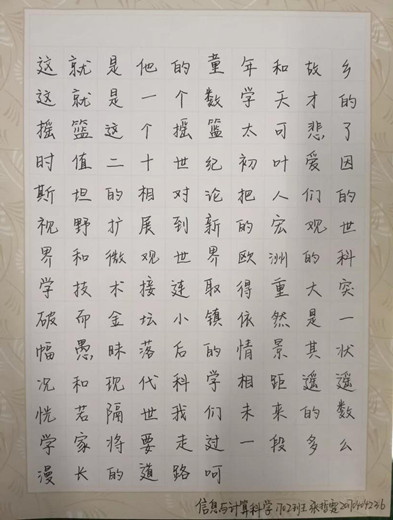 这就是他的童年和故乡
这就是一个数学天才的
摇篮这个摇篮太可悲了
时值二十世纪初叶爱因
斯坦的相对论把人们的
视野扩展到新的宏观世
界和微观世界欧洲的科
学技术接连取得重大突
破而金坛小镇依然是一
幅愚昧落后的情景其状
况和现代科学相距遥遥
恍若隔世我们未来的数
学家将要走过一段多么
漫长的道路呵
信息与计算科学